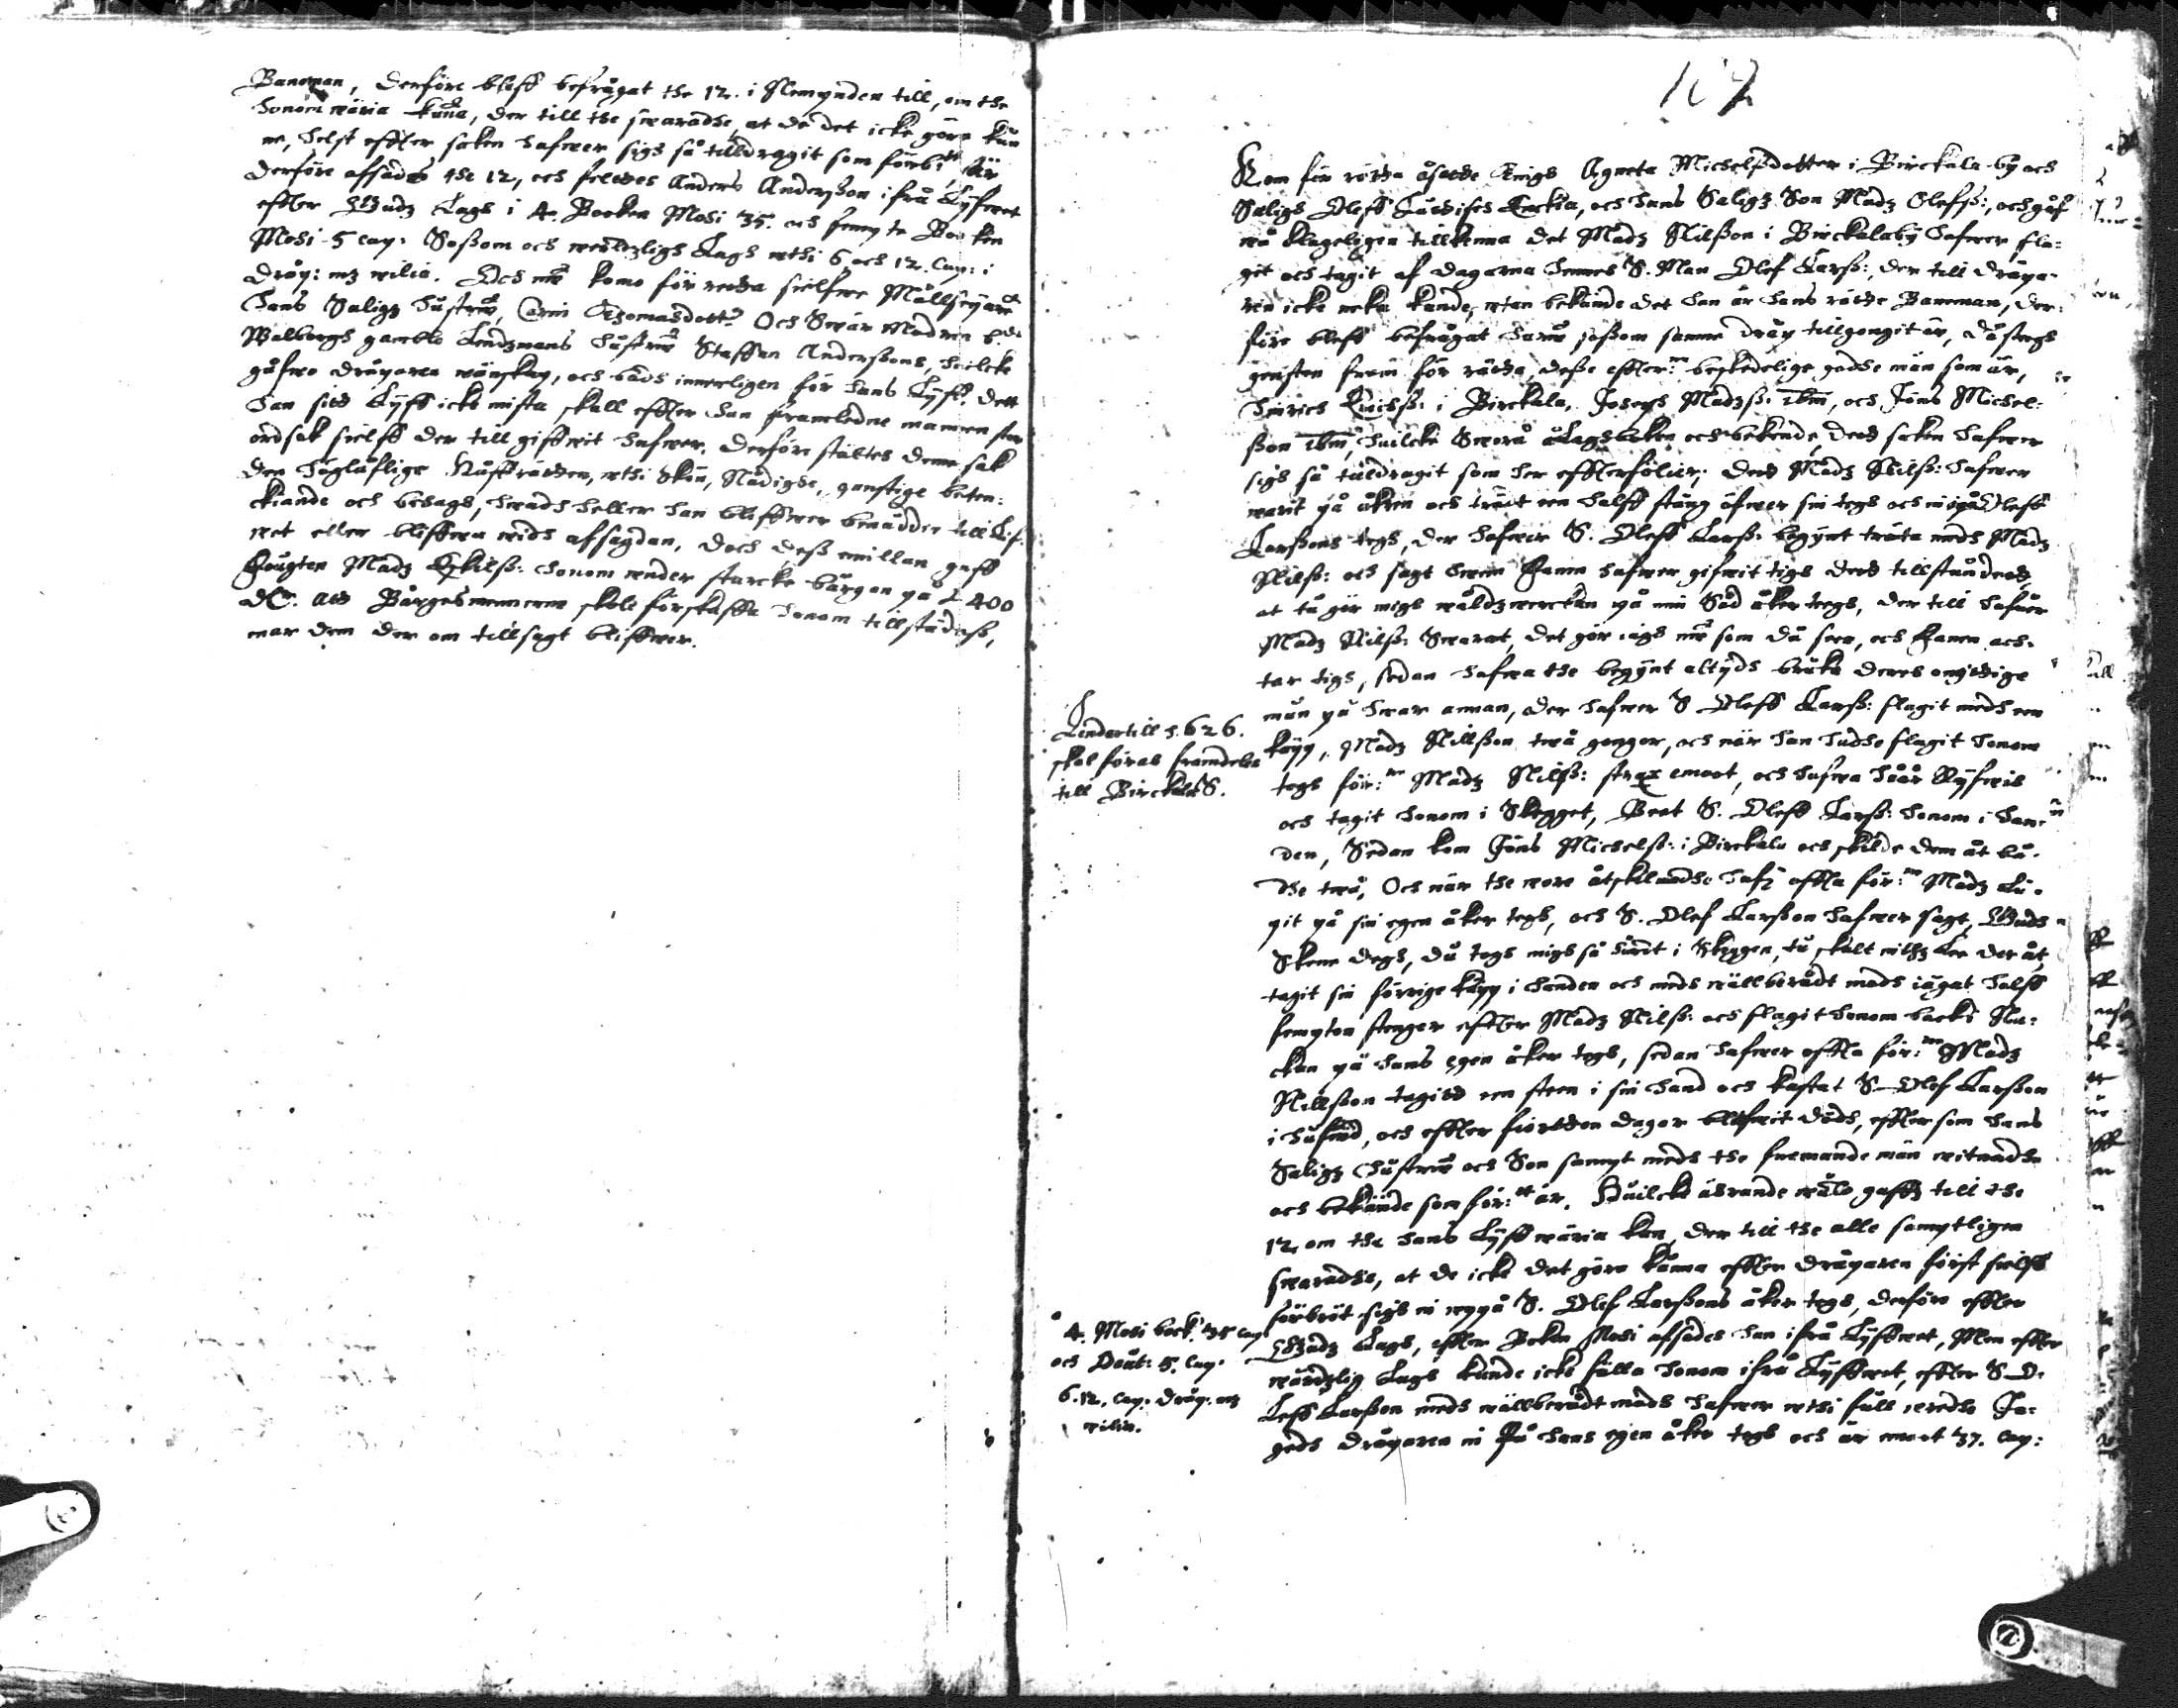 Baneman, derföre bleff befrågat the 12. i Nemynden till, om the
honom wäria kuna, der till the swaradhe, at de det icke göra kun
ne, helst effter saken hafwer sigh så tilldragit som förb:te är
derföre affsades the 12, och feltes Anders Anderßon ifrå Lyfwet
effter Gudz Lagh i 4. Boeken Mosi 35. och fempte Boeken
Mosi 5 cap: Soßom och werldzligh Lagh uthi 6 och 12. Cap: i
dråp: mz wilia. Och nu komo för retta sielfwe Målseyare
hans Saligz hustru, Carin Thomasdott:r Och Swär Modren b:de
Walborgh gamble Lendzmans hustru Staffan Anderßons, huilcke
gåfwo dråparen wänskap, och badh innerligen för hans Lyff, dett
han sitt Lyff icke mista skall effter han framledne mannen stor
ordsak sielff der till giffwit hafwer. derföre stältes denne sak
den höglåflige Håffrätten, uthi skön, Nådighe, gunstige beten:
ckiande och behagh, hwadh heller han bliffwer benådder till Lif:
wet eller bliffwa widh affsagdan, doch deß emillan gaff
Fougten Madz Eskilß: honom under starcke bårgan på L 400
dl:r. att Bårgesmennerne skole förskaffa honom tillstädeß,
nar dem der om tillsagt bliffwer.
107
Kom för rätta åsatte Tings Agneta Michelßdotter i Birckala by och
Saligh Oleff Larßons Enckia, och hans Saligz Son Madz Olefß:, och gåf
wå klageligen tillkenna det Madz Nilßon i Birckalaby hafwer sla:
git och tagit af dagarna hennes S. Man Olef Larß:, der till dråpa-
ren icke neka kunde, utan bekände det han är hans rätte Baneman, der:
före bleff befrågat huru soßom samme dråp tillgongit är, då stegh
gensten fram för rätta, deße effter:ne beskedelige godhe män som är,
Hinrich Erichß: i Birckala, Joseph Madzß: ibm, och Jöns Michel:
ßon ibm, huilcke Sworå å Lagboken och bekende, dett saken hafwer
sigh så tildragit som her effterfölier, dett Madz Nilß: hafwer
warit på åkren och trädt een halff stång öfwer sin tegh och in på Oleff
Larßons tegh, der hafwer S. Oleff Larß: begynt träta medh Madz
Nilß: och sagt hwem Fanen hafwer gifwit tigh dett tillståndet,
at tu gör migh wåldzwerckan på min Sååd åker tegh, der till hafuer
Madz Nilß: Swarat, det gör iagh nu som du seer, och Fanen ach-
tar tigh, sedan hafwa the begynt altydh bruke deres onyttige
mun på hwar annan, der hafwer S Oleff Larß: slagit medh een
käpp, Madz Nillßon twå gonger, och när han hadhe slagit honom
togh för:ne Madz Nilß: strax emoot, och hafwa håår Ryfweis
och tagit honom i Skegget, Beet S. Oleff Larß: honom i han-
den, Sedan kom Jöns Michelß: i Birckala och skilde dem åt bå-
dhe twå, Och när the wore åtskilandhe hafr offta för:ne Madz Lå-
git på sin egen åker tegh, och S. Olef Larßon hafwer sagt, Gudh
Skene degh, du togh migh så hårdt i Skeggen, tu skalt nitz Lee der åt,
tagit sin förrige käpp i handen och medh wällberådt modh iagat halff
femton stenger effter Madz Nilß: och slagit honom back i Na:
cken på hans egen åker tegh, sedan hafwer offta för:ne Madz
Nillßon tagitt een steen i sin hand och kastat S. Olef Larßon
i hufwd, och effter fiortton dagar bleffwit dödh, effter som hans
Saligz Hustru och Son sampt medh the frnemande män witnadhe
och bekände som för:tt är. Huilcke ährande wåld gaffz till the
12, om the hans Lyff wäria kan, der till the alle sampteligen
swaradhe, at de icke det göra kunna effter dråparen först sielff
förbröt sigh in uppå S. Olef Larßons åker tegh, derföre effter
Gudz Lagh, effter Boken Mosi affsades han ifrå Lyffwet, Men effter
wärdzlig Lagh kunde icke fälla honom ifrå Lyffwet, effter S. O-
leff Larßon medh wällberådt modh hafwer uthi full wredhe Ja:
gedh dråparen in På hans egen åker tegh och är emot 37. Cap:
Lender till 5.626.
skal föras framdeles
till Birckala S.
4. Mosi bock: 35 cap
och Deut: 5. Cap.
6. 12. Cap. dråp. mz
wilia.